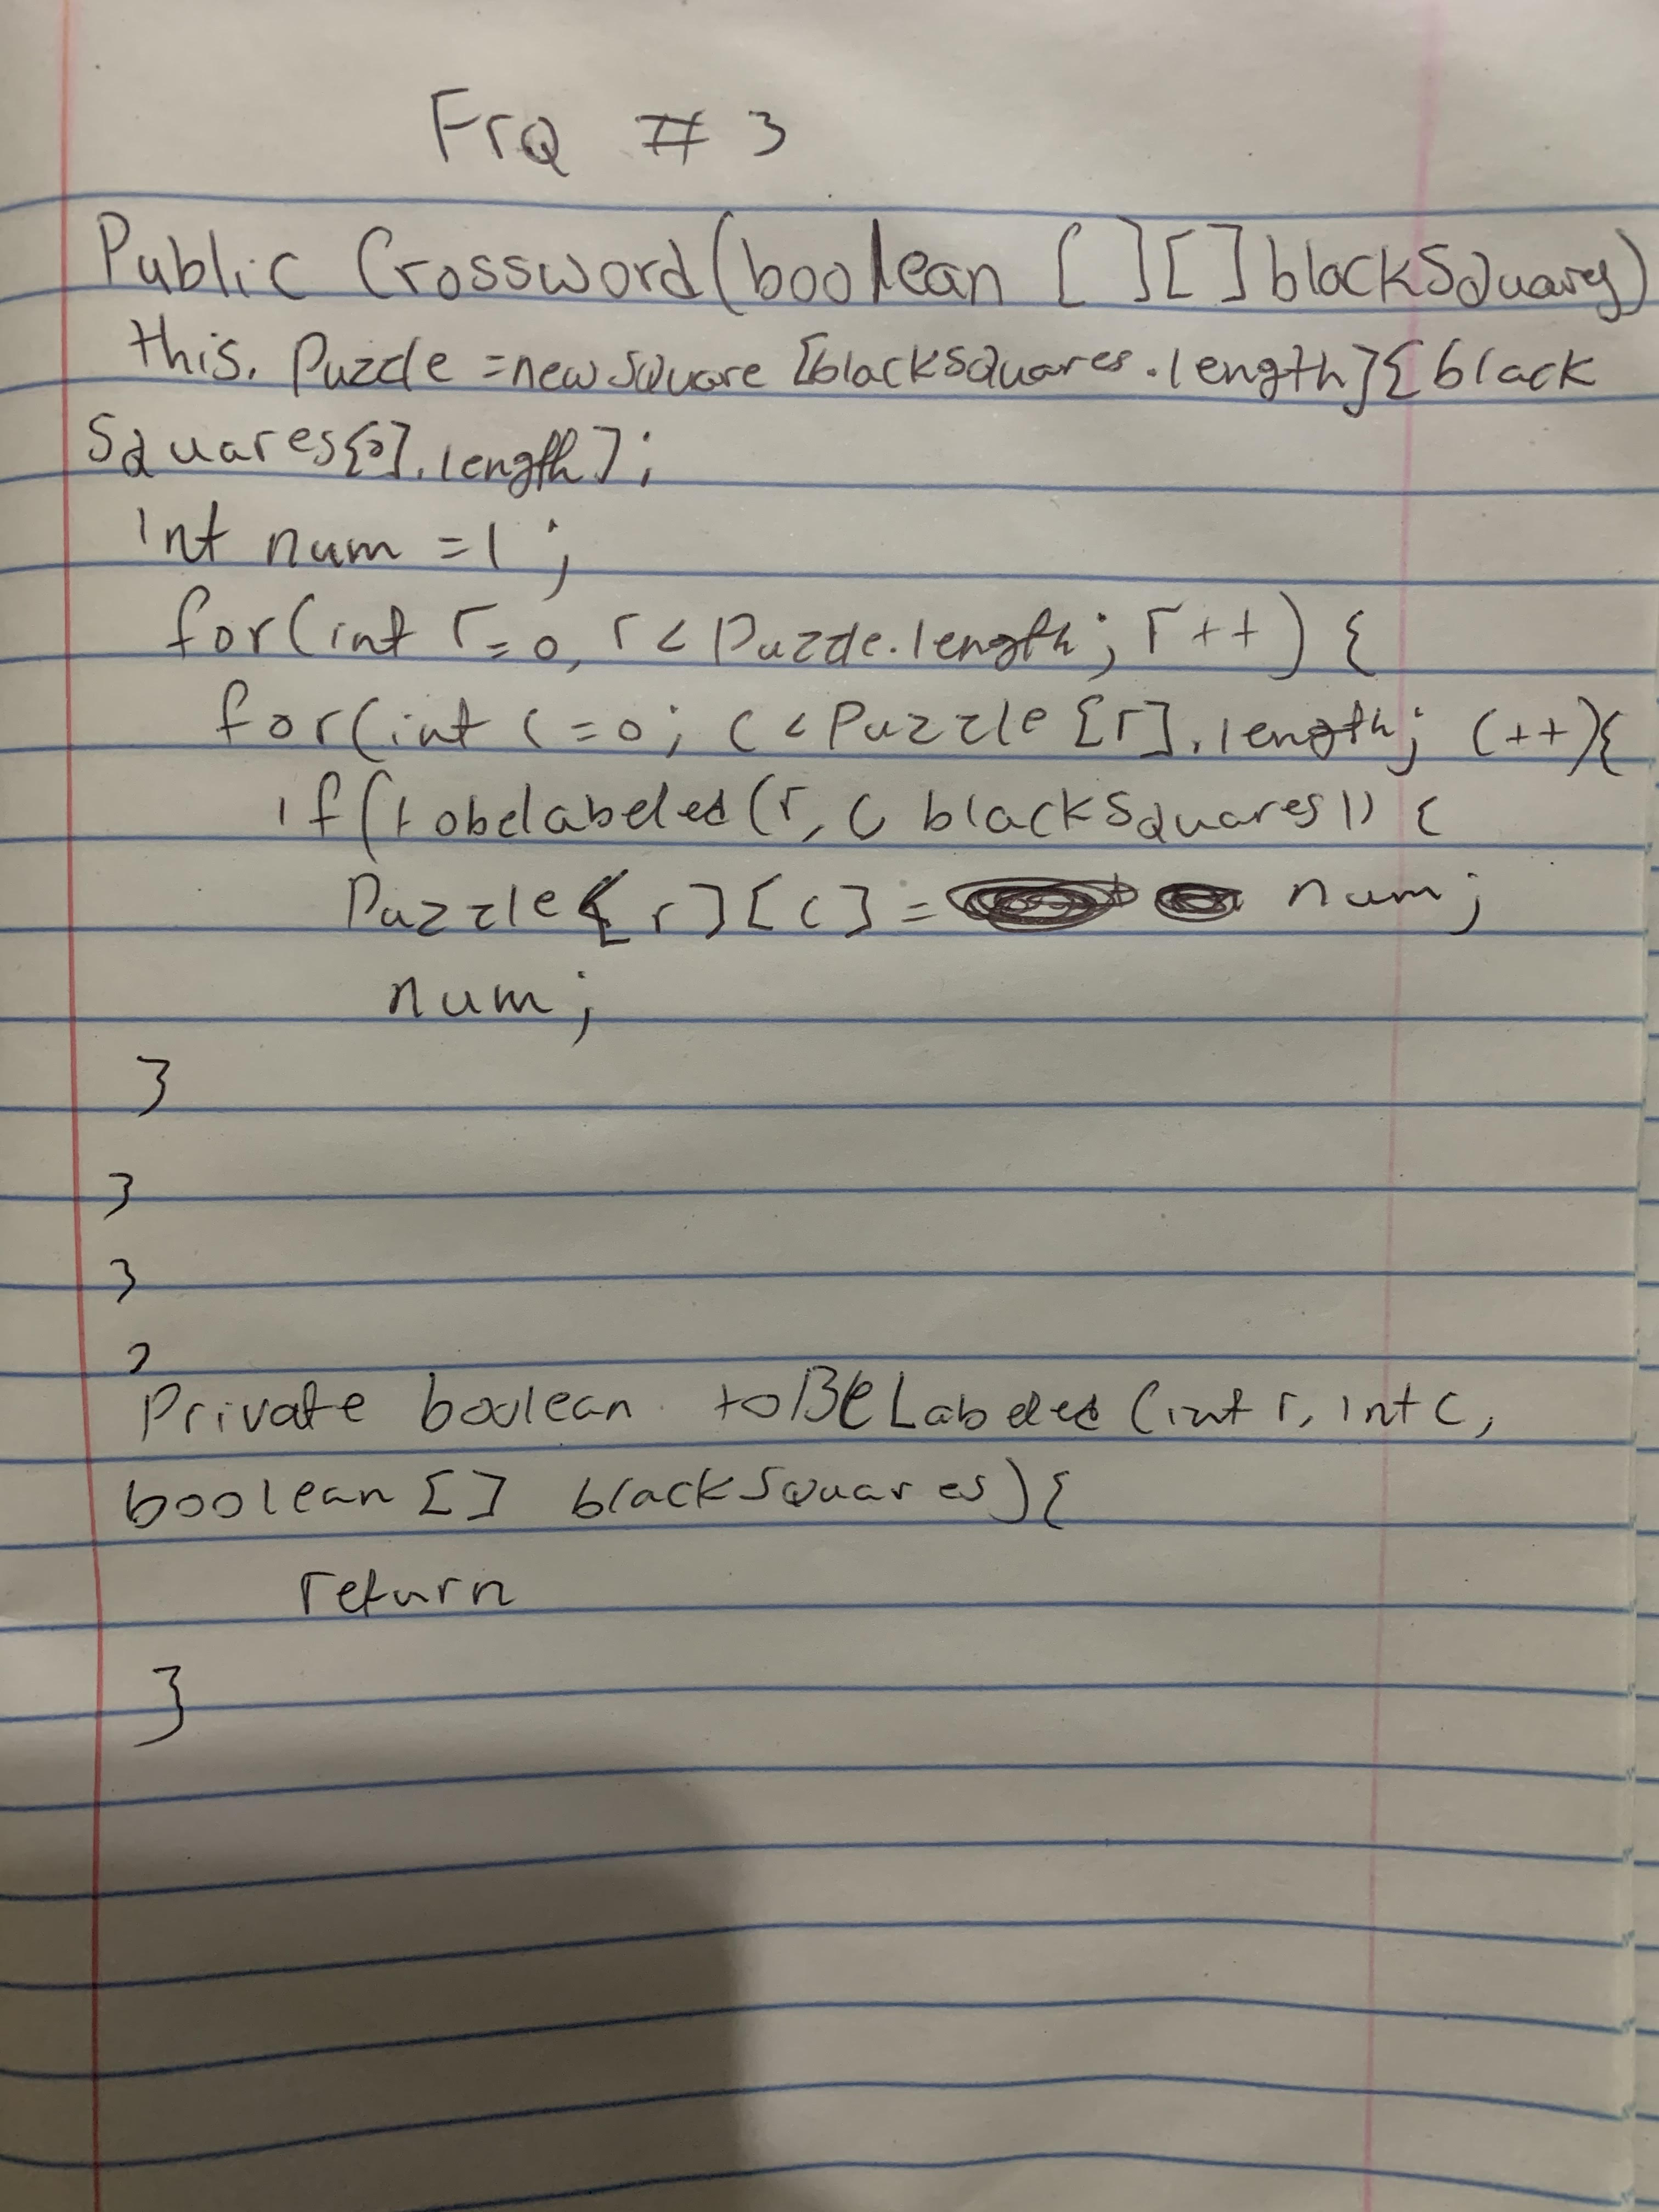 FrQ # 3
Public Crossword(boolean [ ][ ]blackSquares)
this. Puzzle =new Square [blackSquares.length]{black
Squares[0].length];
int num =1 ;
for(int r=0, r< Puzzle.length; r++) {
for(int c=0; c < Puzzle[r].length; c++){
if(tobelabeled(r, c blackSquares)) {
Puzzle[r][c] = num;
num;
}
}
}
}
Private boolean toBeLabeled (int r, int c,
boolean [] blackSquares){
return
}